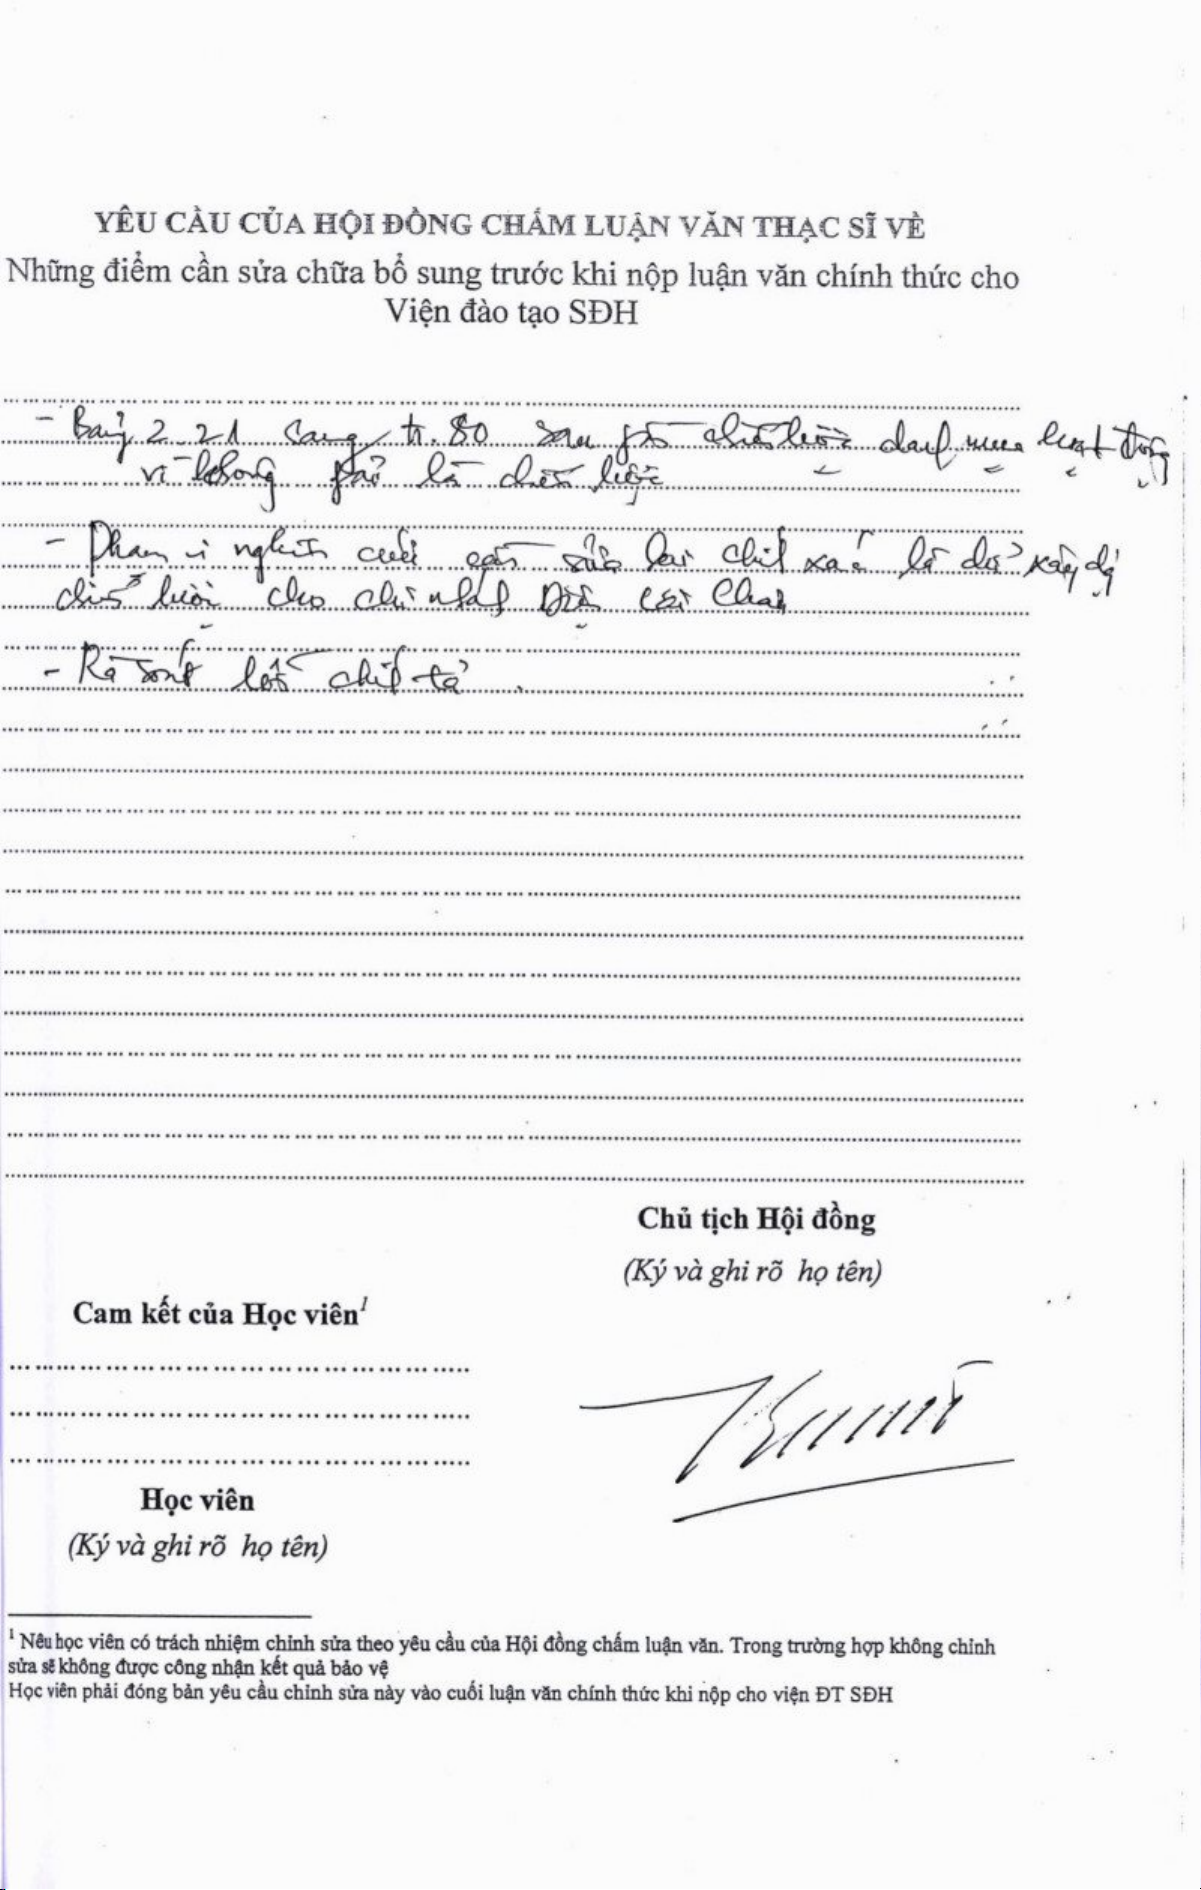 YÊU CẦU CỦA HỘI ĐỒNG CHẤM LUẬN VĂN THẠC SĨ VỀ
Những điểm cần sửa chữa bổ sung trước khi nộp luận văn chính thức cho
Viện đào tạo SĐH
- Bảng 2.21 tr. 80 chiến lược hoạt động
vì không phải là chiến lược
- Phạm vi nghiên cứu cần sửa lại xây dự
chiến lược cho chi nhánh
- Rà soát lỗi chính tả.
Chủ tịch Hội đồng
(Ký và ghi rõ họ tên)
Cam kết của Học viên¹
Học viên
(Ký và ghi rõ họ tên)
¹ Nêu học viên có trách nhiệm chỉnh sửa theo yêu cầu của Hội đồng chấm luận văn. Trong trường hợp không chỉnh
sửa sẽ không được công nhận kết quả bảo vệ
Học viên phải đóng bản yêu cầu chỉnh sửa này vào cuối luận văn chính thức khi nộp cho viện ĐT SĐH